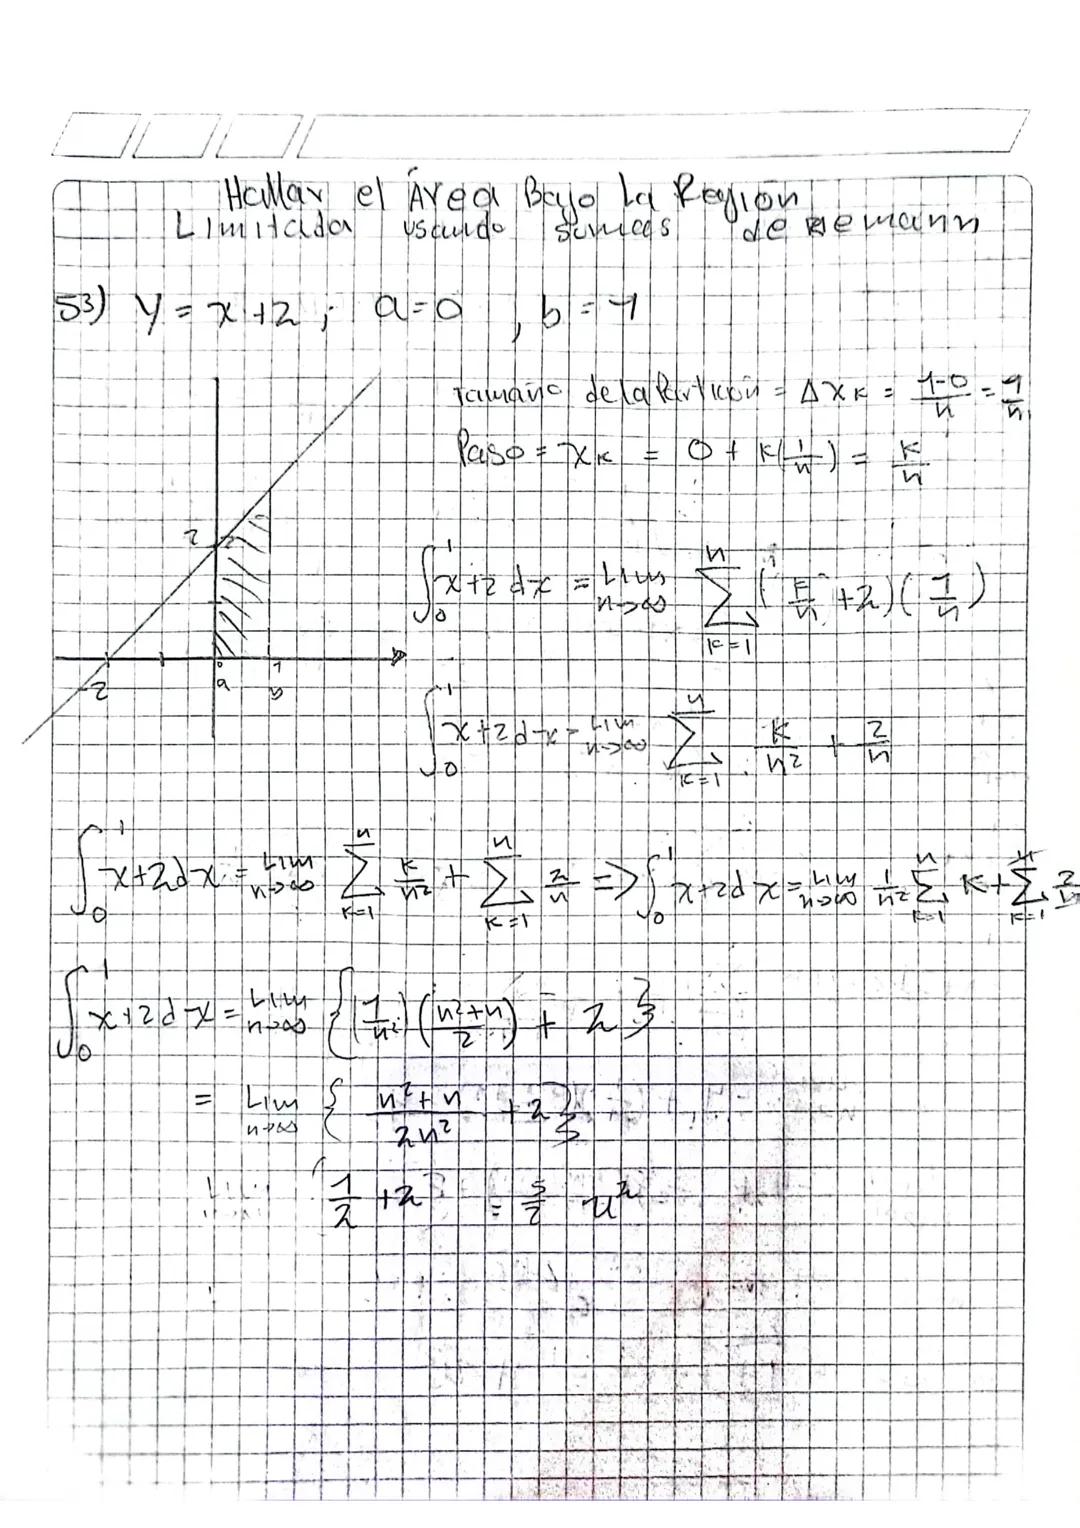 Hallar el Área Bajo La Región
Limitada usando sumas de Riemann
53) y = x+2 ; a=0 , b=1
Tamaño de la Partición = Δxk = 1-0/n = 1/n
Paso = xk = 0 + k(1/n) = k/n
∫₀¹ x+2 dx = Lim n→∞ Σ k=1 n (k/n +2)(1/n)
2
-2
0 1
a b
∫₀¹ x+2dx = Lim n→∞ Σ k=1 n k/n² + 2/n
∫₀¹ x+2dx = Lim n→∞ Σ k=1 n k/n² + Σ k=1 n 2/n => ∫₀¹ x+2dx = Lim n→∞ 1/n² Σ k=1 n k + Σ k=1 n 2/n
∫₀¹ x+2dx = Lim n→∞ {(1/n²)(n²+n/2) + 2}
= Lim n→∞ { n²+n/2n² +2}
1/2 +2 = 5/2 u²